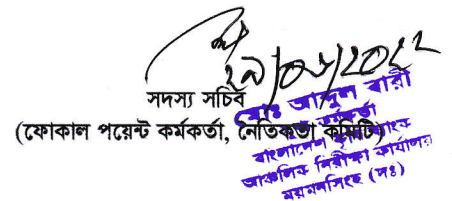 ২৯/০৬/২০২২
সদস্য সচিব
(ফোকাল পয়েন্ট কর্মকর্তা, নৈতিকতা কমিটি)
মোঃ আব্দুল বারী
কর্মকর্তা
বাংলাদেশ কৃষি ব্যাংক
আঞ্চলিক নিরীক্ষা কার্যালয়
ময়মনসিংহ (দঃ)